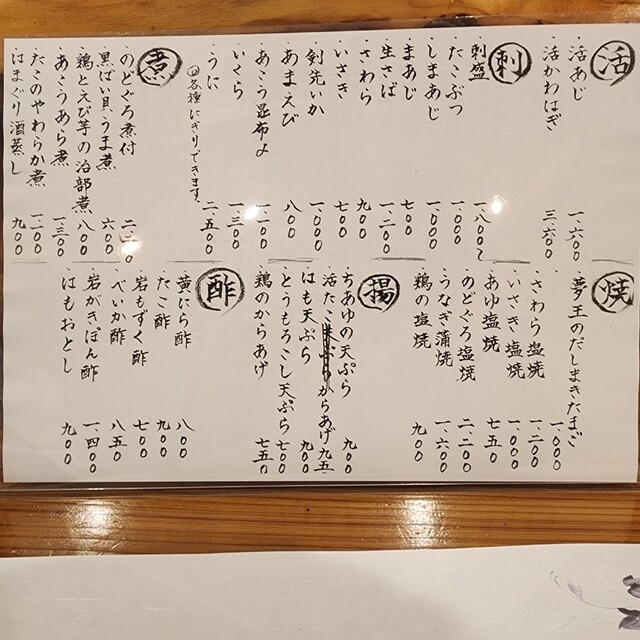 活
・活あじ 一、六〇〇
・活かわはぎ 三、六〇〇
刺
刺盛 一、八〇〇〜
・たこぶつ 一、〇〇〇
・しまあじ 一、〇〇〇
・まあじ 七〇〇
・生さば 一、二〇〇
・さわら 九〇〇
・いさき 七〇〇
・剣先いか 一、〇〇〇
・あまえび 八〇〇
・あこう昆布〆 一、一〇〇
・いくら 一、三〇〇
・うに 二、五〇〇
各種にぎりできます。
煮
・のどぐろ煮付
・黒ばい貝うま煮 六〇〇
・鶏とえび芋の治部煮 八〇〇
・あこうあら煮 一、三〇〇
・たこのやわらか煮 一、一〇〇
・はまぐり酒蒸し 九〇〇
焼
・夢王のだしまきたまご 一、〇〇〇
・さわら塩焼 一、二〇〇
・いさき塩焼 一、〇〇〇
・あゆ塩焼 七五〇
・のどぐろ塩焼 二、二〇〇
・うなぎ蒲焼 一、六〇〇
・鶏の塩焼 九〇〇
揚
・ちあゆの天ぷら 九〇〇
・活たこからあげ 九五〇
・はも天ぷら 九〇〇
・とうもろこし天ぷら 七〇〇
・鶏のからあげ 七五〇
酢
・黄にら酢 八〇〇
・たこ酢 九〇〇
・岩もずく酢 七〇〇
・べいか酢 八五〇
・岩がきぽん酢 一、四〇〇
・はもおとし 九〇〇